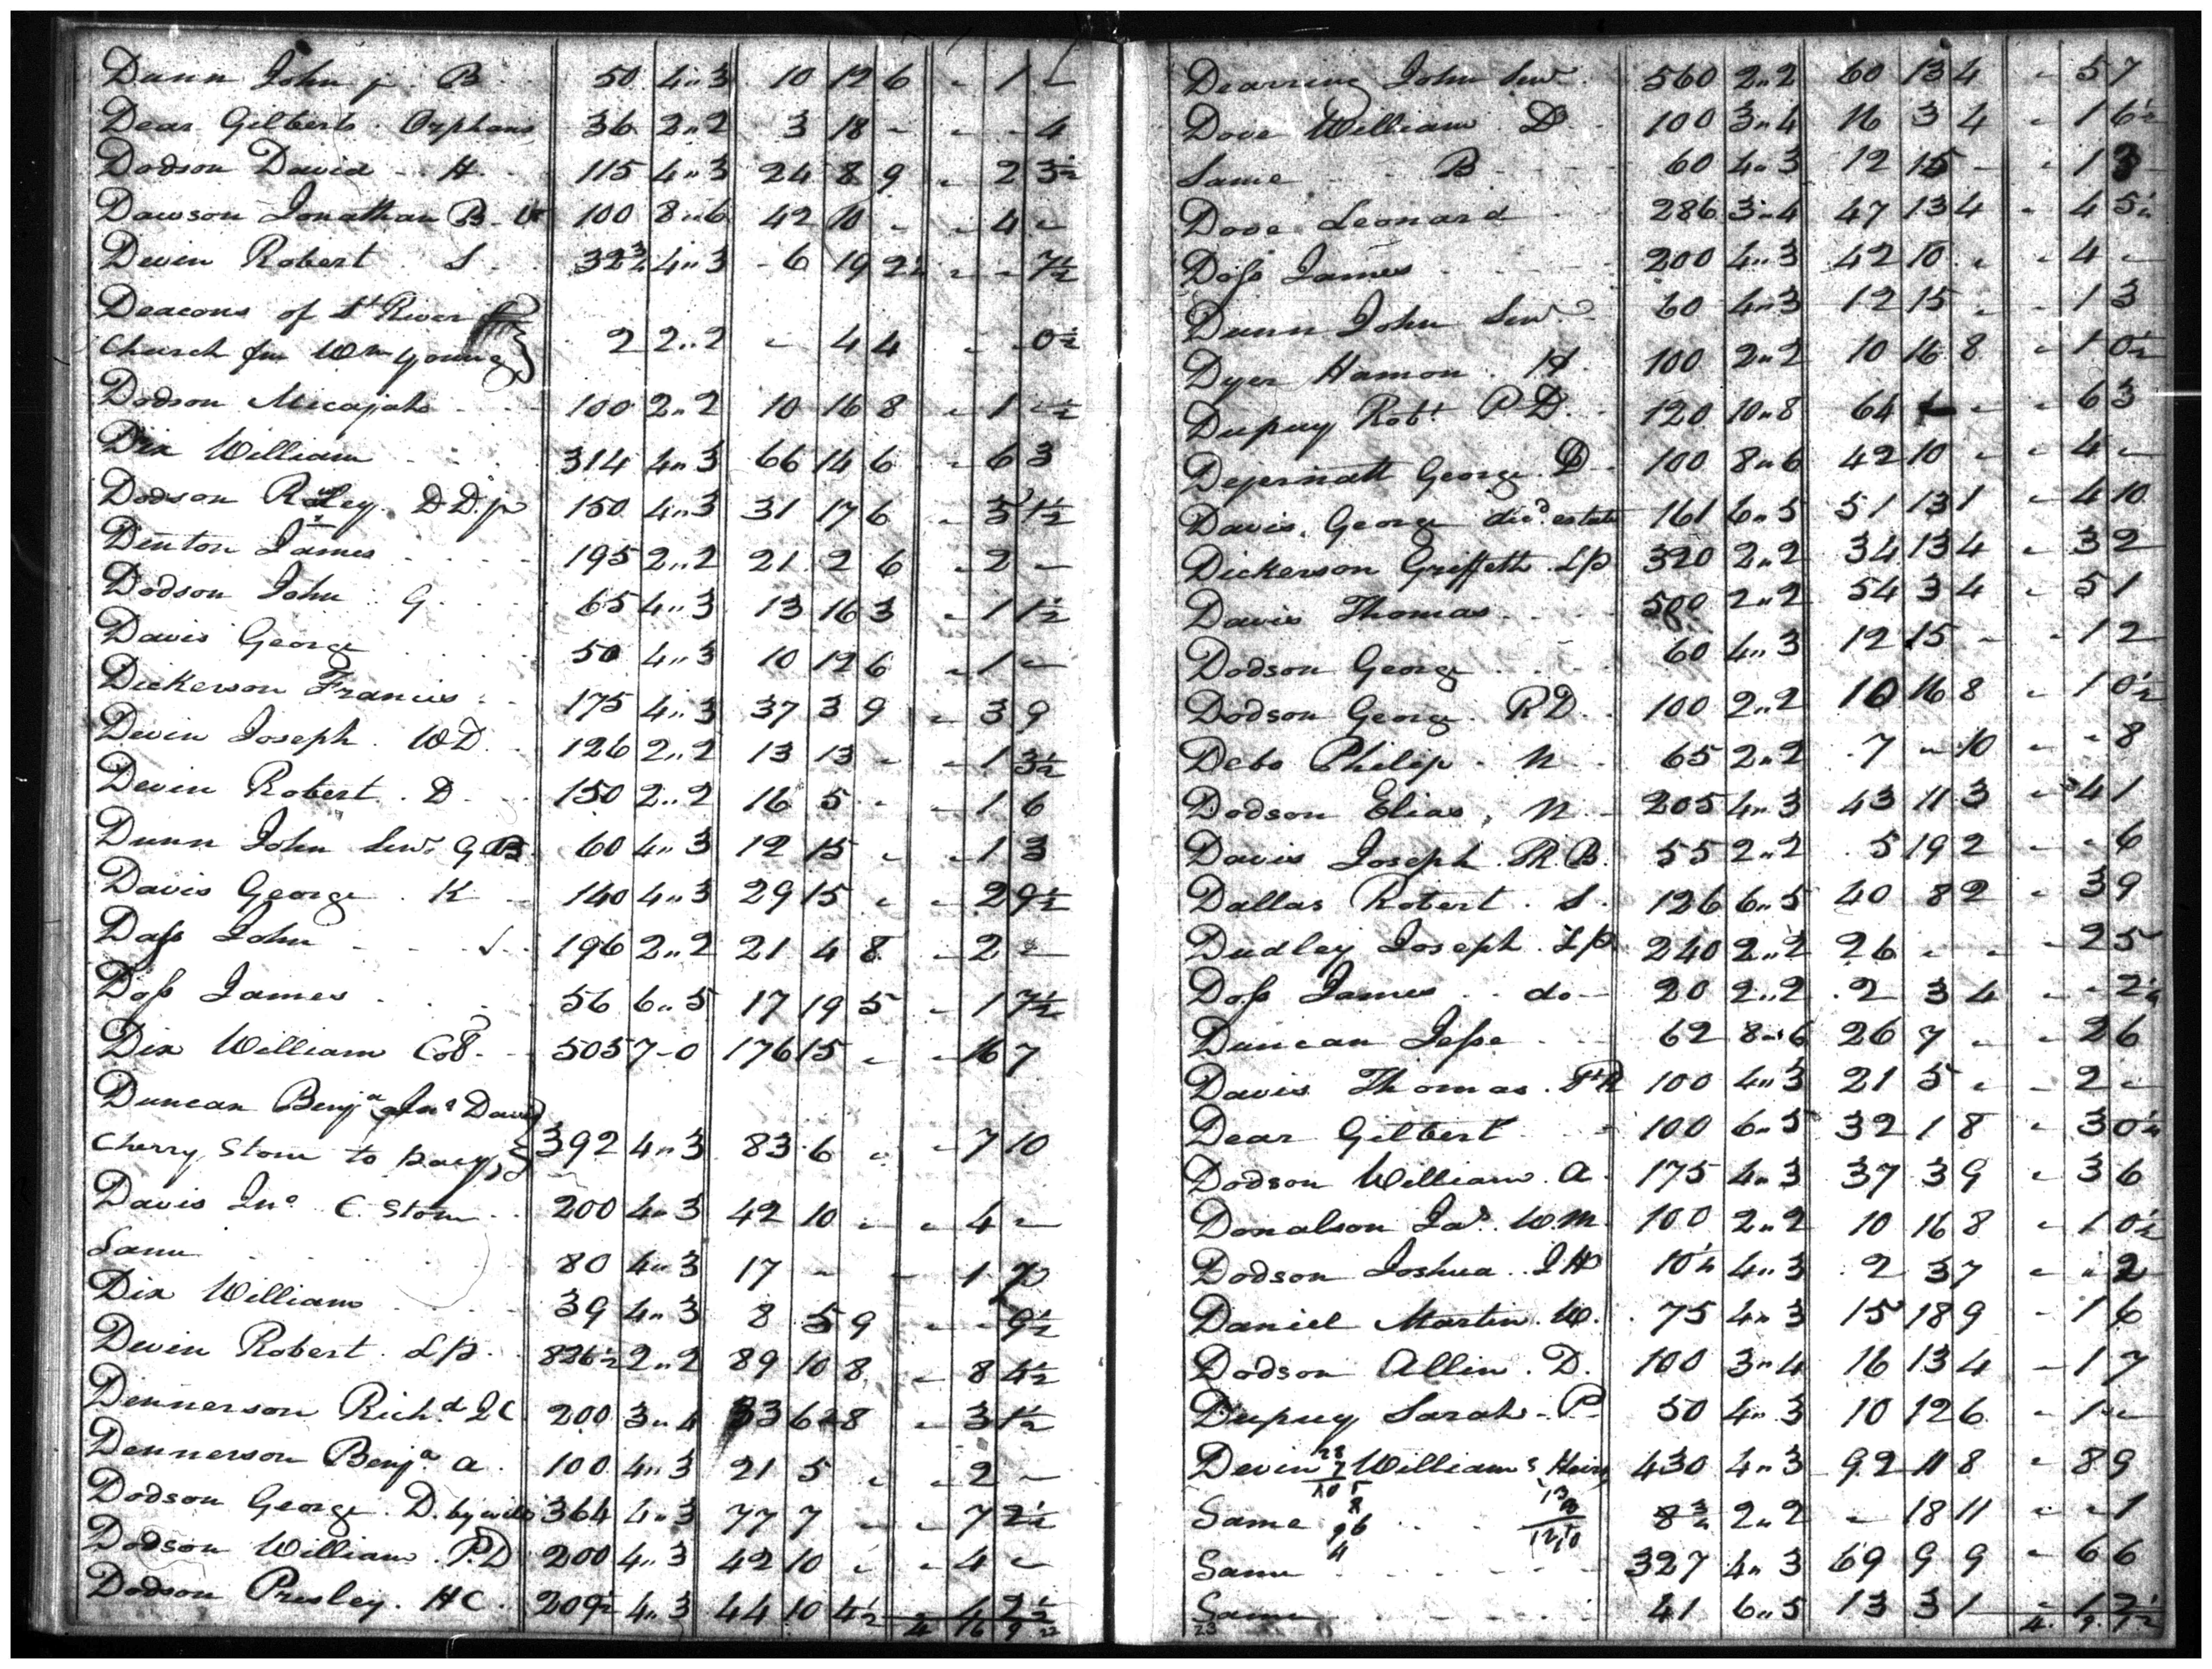 Dunn John jr. B 50 4"3 10 12 6 " 1 "
Dear Gilberts Orphans 36 2"2 3 18 " " " 4
Dodson David H. 115 4"3 24 8 9 " 2 3½
Dawson Jonathan B 100 8"6 42 10 " " 4 "
Devin Robert S 32¾ 4"3 6 19 2½ " " 7½
Deacons of St River
Church fm Wm Young 2 2"2 " 4 4 " " 0½
Dodson Micajah 100 2"2 10 16 8 " 1 "½
Dix William 314 4"3 66 14 6 " 6 3
Dodson Rawley D.D.P 150 4"3 31 17 6 " 3 1½
Denton James 195 2"2 21 2 6 " 2 "
Dodson John G. 65 4"3 13 16 3 " 1 1½
Davis George 50 4"3 10 12 6 " 1 "
Dickerson Francis 175 4"3 37 3 9 " 3 9
Devin Joseph WD. 126 2"2 13 13 " " 1 3½
Devin Robert D. 150 2"2 16 5 " " 1 6
Dunn John Senr G B 60 4"3 12 15 " " 1 3
Davis George K 140 4"3 29 15 " " 2 9½
Doss John S 196 2"2 21 4 8 " 2 "
Doss James 56 6"5 17 19 5 " 1 7½
Dix William Co 505 7-0 176 15 " " 16 7
Duncan Benja Jno David
Cherry Stone to pay 392 4"3 83 6 " " 7 10
Davis Jno C. Stone 200 4"3 42 10 " " 4 "
Same 80 4"3 17 " " 1 7
Dix William 39 4"3 8 5 9 " " 9½
Devin Robert LP. 826½ 2"2 89 10 8 " 8 4½
Dennerson Richd JC 200 3"4 33 6 8 " 3 1½
Dennerson Benja a 100 4"3 21 5 " " 2 "
Dodson George D. by will 364 4"3 77 7 " " 7 2½
Dodson William P.D 200 4"3 42 10 " " 4 "
Dodson Presley HC. 209½ 4"3 44 10 4½ " 4 2½
4 16 9
Dearring John Senr 560 2"2 60 13 4 " 5 7
Dove William D 100 3"4 16 3 4 " 1 6½
Same B 60 4"3 12 15 " " 1 3
Dove Leonard 286 3"4 47 13 4 " 4 5½
Doss James 200 4"3 42 10 " " 4 "
Dunn John Senr 60 4"3 12 15 " " 1 3
Dyer Hamon H. 100 2"2 10 16 8 " 1 0½
Dupuy Robt P D. 120 10"8 64 " " " 6 3
Dejernatt George D 100 8"6 42 10 " " 4 "
Davis George decd estate 161 6"5 51 13 1 " 4 10
Dickerson Griffeth LP 320 2"2 34 13 4 " 3 2
Davis Thomas 500 2"2 54 3 4 " 5 1
Dodson George 60 4"3 12 15 " " 1 2
Dodson George RD. 100 2"2 10 16 8 " 1 0½
Debo Philip N 65 2"2 7 " 10 " " 8
Dodson Elias, N 205 4"3 43 11 3 " 4 1
Davis Joseph R B. 55 2"2 5 19 2 " " 6
Dallas Robert S. 126 6"5 40 8 2 " 3 9
Dudley Joseph LP 240 2"2 26 " " " 2 5
Doss James do 20 2"2 2 3 4 " " 2½
Duncan Jesse 62 8"6 26 7 " " 2 6
Davis Thomas 100 4"3 21 5 " " 2 "
Dear Gilbert 100 6"5 32 1 8 " 3 0½
Dodson William A. 175 4"3 37 3 9 " 3 6
Donalson Jas. WM 100 2"2 10 16 8 " 1 0½
Dodson Joshua JH 10½ 4"3 2 3 7 " " 2
Daniel Martin W. 75 4"3 15 18 9 " 1 6
Dodson Allin D. 100 3"4 16 13 4 " 1 7
Dupuy Sarah P 50 4"3 10 12 6 " 1 "
Devin Williams Heirs 430 4"3 92 11 8 " 8 9
Same 8¾ 2"2 " 18 11 " " 1
Same 327 4"3 69 9 9 " 6 6
Same 41 6"5 13 3 1 " 1 2½
23 4. 9. 1½